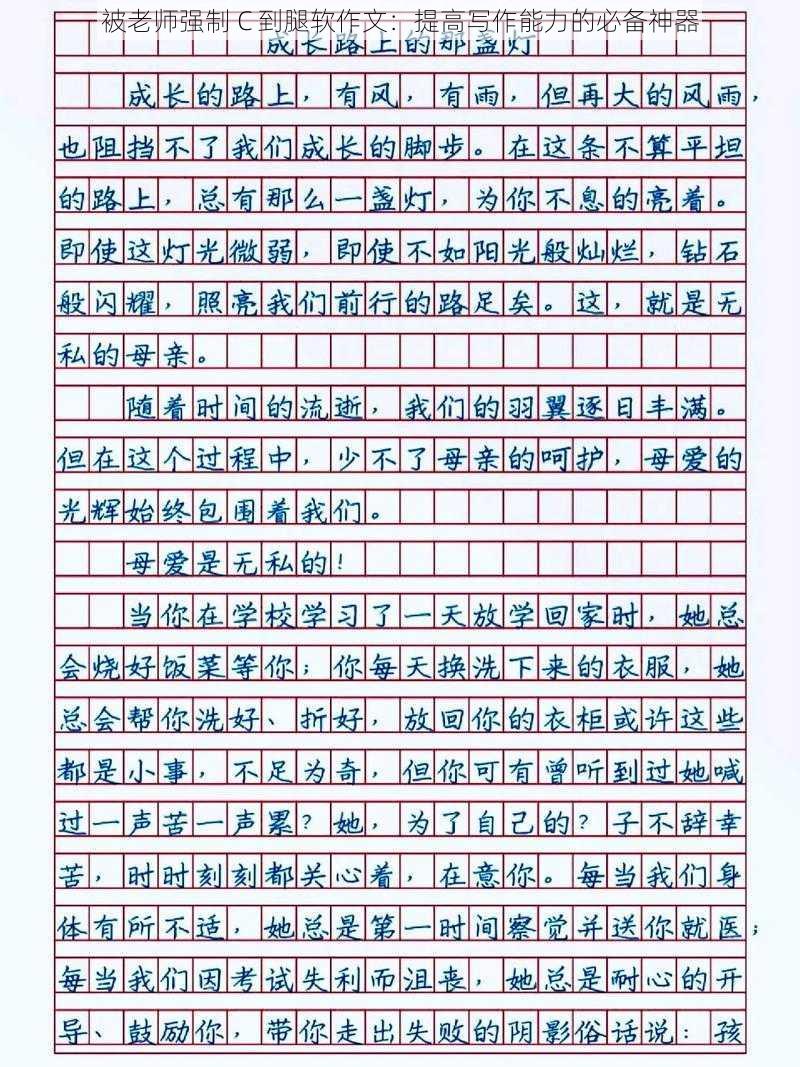 被老师强制C到腿软作文：提高写作能力的必备神器
成长路上的那盏灯
成长的路上，有风，有雨，但再大的风雨，
也阻挡不了我们成长的脚步。在这条不算平坦
的路上，总有那么一盏灯，为你不息的亮着。
即使这灯光微弱，即使不如阳光般灿烂，钻石
般闪耀，照亮我们前行的路足矣。这，就是无
私的母亲。
随着时间的流逝，我们的羽翼逐日丰满。
但在这个过程中，少不了母亲的呵护，母爱的
光辉始终包围着我们。
母爱是无私的！
当你在学校学习了一天放学回家时，她总
会烧好饭菜等你；你每天换洗下来的衣服，她
总会帮你洗好、折好，放回你的衣柜或许这些
都是小事，不足为奇，但你可有曾听到过她喊
过一声苦一声累？她，为了自己的？子不辞幸
苦，时时刻刻都关心着，在意你。每当我们身
体有所不适，她总是第一时间察觉并送你就医；
每当我们因考试失利而沮丧，她总是耐心的开
导、鼓励你，带你走出失败的阴影俗话说：孩